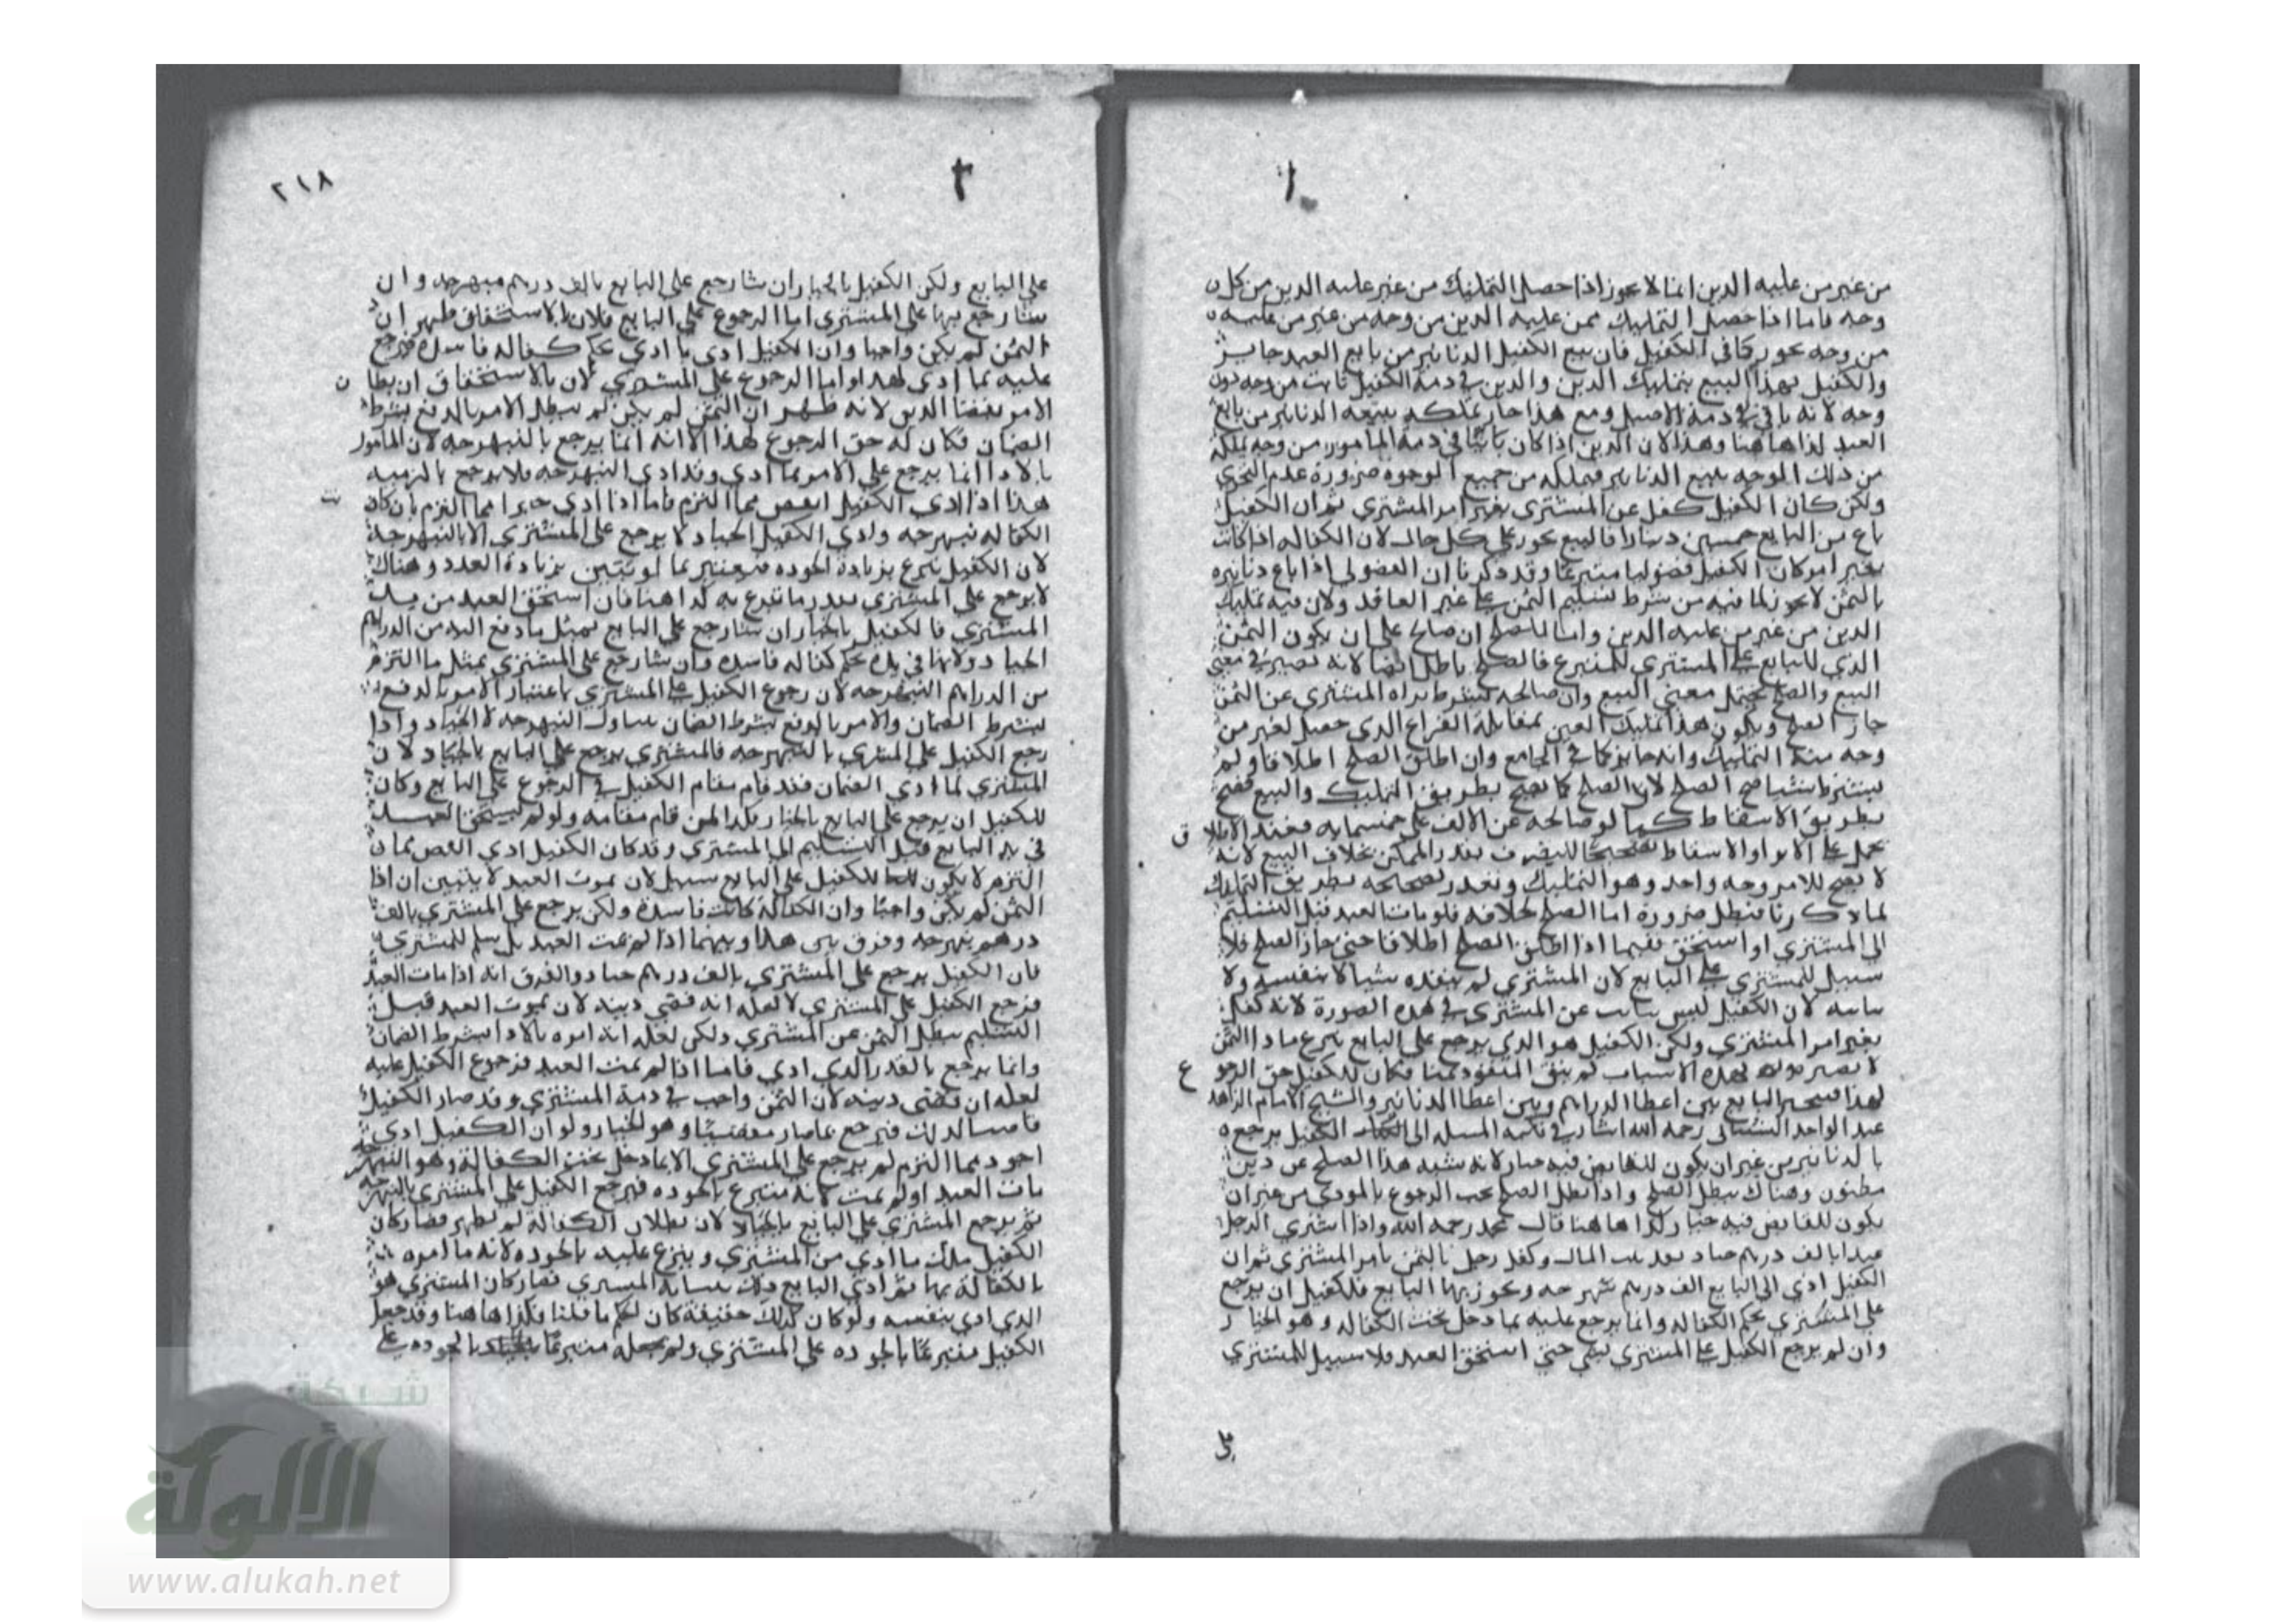 من غير من عليه الدين انما لا يجوز اذا حصل التمليك من غير عليه الدين من كل
وجه فاما اذا حصل التمليك ممن عليه الدين من وجه من غير من عليه
من وجه يجوز كما في الكفيل فان بيع الكفيل الدنانير من بايع العبد جايز
والكفيل بهذا البيع بتمليك الدين والدين في ذمة الكفيل ثابت من وجه دون
وجه لانه باقي في ذمة الاصيل ومع هذا جاز تملكه ببيعه الدنانير من بايع
العبد لذا هاهنا وهذا لان الدين اذا كان ثابتا في ذمة المامور من وجه يملكه
من ذلك الوجه ببيع الدنانير فيملكه من جميع الوجوه ضرورة عدم التجزي
ولكن كان الكفيل كفل عن المشتري بغير امر المشتري ثم ان الكفيل
باع من البايع خمسين دينارا فالبيع يجوز على كل حال لان الكفاله اذا كانت
بغير امر كان الكفيل فضوليا متبرعا وقد ذكرنا ان الفضولي اذا باع دنانيره
بالثمن لا يجوز لما فيه من شرط تسليم الثمن على غير العاقد ولان فيه تمليك
الدين من غير من عليه الدين واما الصلح ان صالح على ان يكون الثمن
الذي للبايع على المشتري للمتبرع فالصلح باطل ايضا لانه تصير في معنى
البيع والصلح يحتمل معنى البيع وان صالحه بشرط براة المشتري عن الثمن
جاز الصلح ويكون هذا تمليك العين بمقابلة الفراغ الذي حصل لغير من
وجه منه التمليك وانه جايز كما في الجامع وان اطلق الصلح اطلاقا ولم
يشترط شيا صح الصلح لان الصلح كما يصح بطريق التمليك والبيع فصح
بطريق الاسقاط كما لو صالحه عن الالف على خمسمايه فعند الاطلاق
يحمل على الابرا والاسقاط تصحيحا للتصرف بقدر الممكن بخلاف البيع لانه
لا يصح للامر وجه واحد وهو التمليك وتعذر تصحيحه بطريق التمليك
لما ذكرنا فبطل ضرورة اما الصلح بخلافه فلو مات العبد قبل التسليم
الى المشتري او استحق ففيما اذا اطلق الصلح اطلاقا حتى جاز الصلح فلا
سبيل للمشتري على البايع لان المشتري لم ينقده شيا لا بنفسه ولا
بنايبه لان الكفيل ليس بنايب عن المشتري في هذه الصورة لانه كفل
بغير امر المشتري ولكن الكفيل هو الذي يرجع على البايع
لهذه الاسباب لم يبق المنقود ثمنا فكان للكفيل حق الرجوع
لهذا فيتخير البايع بين اعطا الدراهم وبين اعطا الدنانير والشيخ الامام الزاهد
عبد الواحد الشيباني رحمه الله اشار في نكتة المسله الى ان الكفيل يرجع
بالدنانير من غير ان يكون للقابض فيه خيار لانه شبه هذا الصلح عن دين
مظنون وهناك يبطل الصلح واذا بطل الصلح يجب الرجوع بالمودى من غير ان
يكون للقابض فيه خيار وكذا هاهنا قال محمد رحمه الله واذا اشترى الرجل
عبدا بالف درهم جياد نقد بيت المال وكفل رجل بالثمن بامر المشتري ثم ان
الكفيل ادى الى البايع الف درهم نبهرجه وتجوز بها البايع فللكفيل ان يرجع
على المشتري بحكم الكفاله وانما يرجع عليه بما دخل تحت الكفاله وهو الجياد
وان لم يرجع الكفيل على المشتري بشي حتى استحق العبد فلا سبيل للمشتري
٢١٨
على البايع ولكن الكفيل بالخيار ان شا رجع على البايع بالف درهم نبهرجه وان
شا رجع بها على المشتري اما الرجوع على البايع فلان بالاستحقاق ظهر ان
الثمن لم يكن واجبا وان الكفيل ادى ما ادى بحكم كفاله فاسده فيرجع
عليه بما ادى لهذا واما الرجوع على المشتري لان بالاستحقاق ان بطل
الامر بقضا الدين لانه ظهر ان الثمن لم يكن لم يبطل الامر بالدفع بشرط
الضمان فكان له حق الرجوع لهذا الا انه انما يرجع بالنبهرجه لان المامور
بالادا انما يرجع على الامر بما ادى وقد ادى النبهرجه فلا يرجع بالزيادة
هذا اذا ادى الكفيل انقص مما التزم فاما اذا ادى خيرا مما التزم بان كان
الكفاله نبهرجه وادى الكفيل الجياد لا يرجع على المشتري الا بالنبهرجه
لان الكفيل تبرع بزيادة الجوده فيعتبر بما لو تبرع بزيادة العدد وهناك
لا يرجع على المشتري بقدر ما تبرع به كذا هنا فان استحق العبد من يد
المشتري فالكفيل بالخيار ان شا رجع على البايع بمثل ما دفع اليه من الدراهم
الجياد ولانها في يده بحكم كفاله فاسده وان شا رجع على المشتري بمثل ما التزم
من الدراهم النبهرجه لان رجوع الكفيل على المشتري باعتبار الامر بالدفع
بشرط الضمان والامر بالدفع بشرط الضمان تناول النبهرجه لا الجياد واذا
رجع الكفيل على المشتري بالنبهرجه فالمشتري يرجع على البايع بالجياد لان
المشتري لما ادى الضمان فقد قام مقام الكفيل في الرجوع على البايع وكان
للكفيل ان يرجع على البايع بالجياد فكذا لمن قام مقامه ولو لم يستحق العبد
في يد البايع قبل التسليم الى المشتري وقد كان الكفيل ادى انقص مما
التزم لا يكون للكفيل على البايع سبيل لان بموت العبد لا يتبين ان اذا
الثمن لم يكن واجبا وان الكفالة كانت فاسدة ولكن يرجع على المشتري بالف
درهم نبهرجه وفرق بين هذا وبينهما اذا لم يمت العبد بل سلم للمشتري
فان الكفيل يرجع على المشتري بالف درهم جياد والفرق انه اذا مات العبد
فرجع الكفيل على المشتري لا لعلة انه قضى دينه لان بموت العبد قبل
التسليم يبطل الثمن عن المشتري ولكن لعلة انه امره بالادا بشرط الضمان
وانما يرجع بالقدر الذي ادى فاما اذا لم يمت العبد فرجوع الكفيل عليه
لعلة ان قضى دينه لان الثمن واجب في ذمة المشتري وقد صار الكفيل
قاضيا لذلك فيرجع بما صار مقضيا وهو الجياد ولو ان الكفيل ادى
اجود مما التزم لم يرجع على المشتري الا بما دخل تحت الكفالة وهو النبهرجه
مات العبد او لم يمت لانه متبرع بالجوده فيرجع الكفيل على المشتري بالنبهرجه
ثم يرجع المشتري على البايع بالجياد لان بطلان الكفالة لم يظهر فصار كان
الكفيل ملك ما ادى من المشتري وتبرع عليه بالجوده لانه ما امره
بالكفالة بها ثم ادى البايع ذلك بنيابه المشتري فصار كان المشتري هو
الذي ادى بنفسه ولو كان كذلك حقيقة كان الحكم ما قلنا فكذا هاهنا وقد جعل
الكفيل متبرعا بالجوده على المشتري ولم يجعله متبرعا بالجوده على
شبكة
الألوكة
www.alukah.net